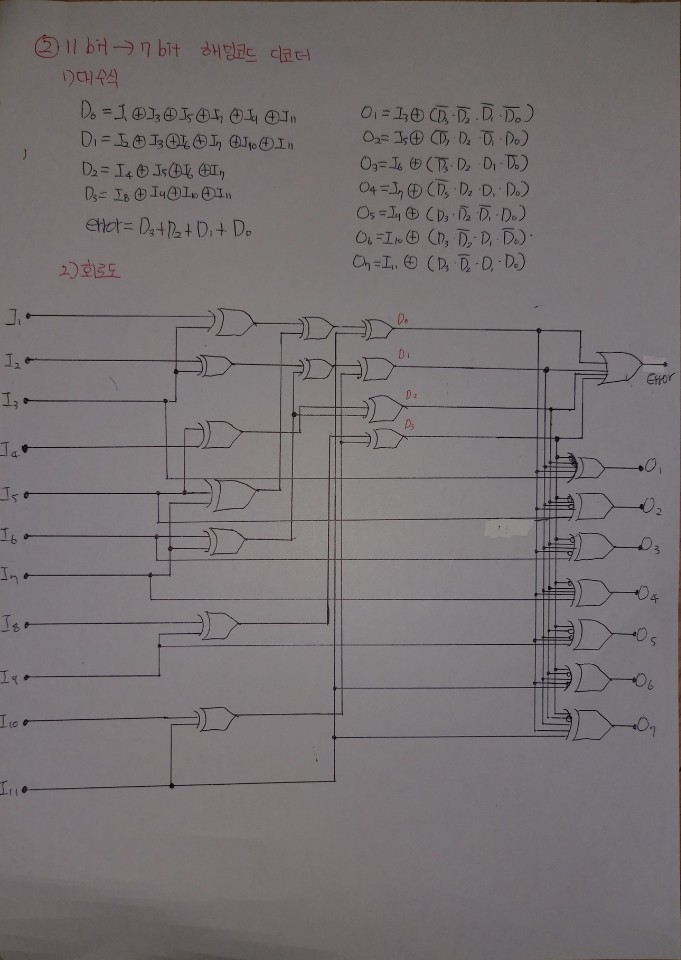 ② 11 bit → 7 bit 해밍코드 디코더
1) 대수식
D₀ = I₁ ⊕ I₃ ⊕ I₅ ⊕ I₇ ⊕ I₉ ⊕ I₁₁
D₁ = I₂ ⊕ I₃ ⊕ I₆ ⊕ I₇ ⊕ I₁₀ ⊕ I₁₁
D₂ = I₄ ⊕ I₅ ⊕ I₆ ⊕ I₇
D₃ = I₈ ⊕ I₉ ⊕ I₁₀ ⊕ I₁₁
error = D₃ + D₂ + D₁ + D₀
O₁ = I₃ ⊕ (D̅₃ · D̅₂ · D̅₁ · D̅₀)
O₂ = I₅ ⊕ (D̅₃ · D₂ · D̅₁ · D₀)
O₃ = I₆ ⊕ (D̅₃ · D₂ · D₁ · D̅₀)
O₄ = I₇ ⊕ (D̅₃ · D₂ · D₁ · D₀)
O₅ = I₉ ⊕ (D₃ · D̅₂ · D̅₁ · D₀)
O₆ = I₁₀ ⊕ (D₃ · D̅₂ · D₁ · D̅₀)
O₇ = I₁₁ ⊕ (D₃ · D̅₂ · D₁ · D₀)
2) 회로도
I₁
I₂
I₃
I₄
I₅
I₆
I₇
I₈
I₉
I₁₀
I₁₁
D₀
D₁
D₂
D₃
error
O₁
O₂
O₃
O₄
O₅
O₆
O₇